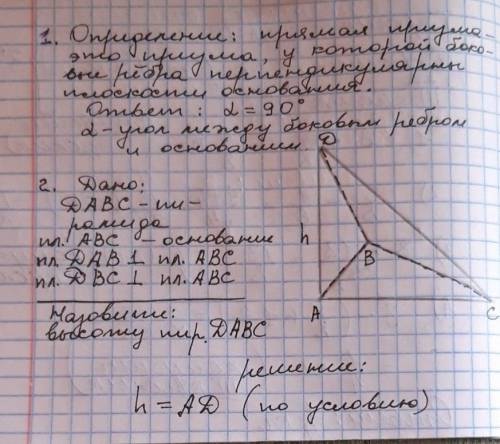 1. Определение: прямая призма-
это призма, у которой боко-
вые рёбра перпендикулярны
плоскости основания.
Ответ: α = 90°
α - угол между боковым ребром
и основанием
2. Дано:
DABC - пи-
рамида
пл. ABC - основание
пл. DAB ⊥ пл. ABC
пл. DBC ⊥ пл. ABC
Назовите:
высоту пир. DABC
D
h
B
A
C
решение:
h = AD (по условию)